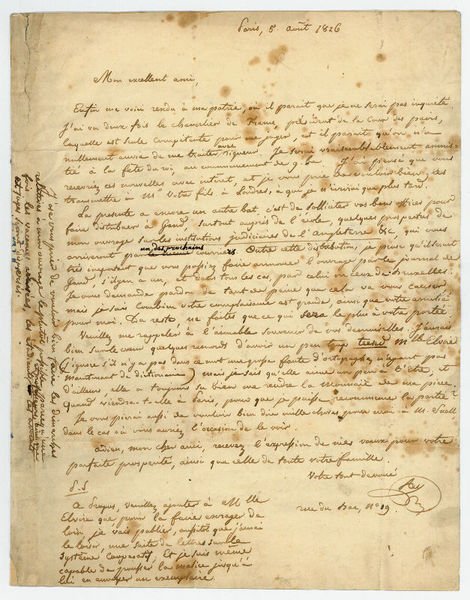 Paris, 5 août 1826
Mon excellent ami,
Enfin me voici rendu à ma patrie, où il paraît que je ne serai pas inquiété.
J'ai vu deux fois le chancelier de France, président de la Cour des pairs,
laquelle est seule compétente pour me juger, et il paraît qu'on n'a
nullement envie de me traiter avec rigueur. Je serai vraisemblablement amnis-
tié à la fête du roi, au commencement de 9.bre. J'ai pensé que vous
recevriez ces nouvelles avec intérêt, et je vous prie de vouloir bien les
transmettre à M. votre fils à Londres, à qui je n'écrirai que plus tard.
La présente a encore un autre but, c'est de solliciter vos bons offices pour
faire distribuer à Gand, surtout auprès de l'école, quelques prospectus de
mon ouvrage sur les institutions judiciaires de l'Angleterre &c, qui vous
arriveront par un des prochains courriers. Outre cette distribution, je pense qu'il serait
très important que vous puissiez faire annoncer l'ouvrage par les journaux de
Gand, s'il y en a un, et dans tous les cas, par celui ou ceux de Bruxelles.
Je vous demande pardon de tant de peine que cela va vous causer
mais je sais combien votre complaisance est grande, ainsi que votre amitié
pour moi. Au reste ne faites que ce qui sera le plus à votre portée.
Veuillez me rappeler à l'aimable souvenir de vos demoiselles. J'aurais
bien sur le cœur quelques remords d'avoir un peu trop Mlle Elvire
(ignore s'il n'y a pas dans ce mot une grosse faute d'orthographe, n'ayant pas
maintenant de dictionnaire) mais je sais qu'elle aime un peu à l'être, et
d'ailleurs elle a toujours su bien me rendre la monnaie de ma pièce.
Quand viendra-t-elle à Paris, pour que je puisse recommencer la partie ?
Je vous prierai aussi de vouloir bien dire mille choses pour moi à M.
dans le cas où vous auriez l'occasion de le voir.
Adieu, mon cher ami, recevez l'expression de mes vœux pour votre
parfaite prospérité, ainsi que celle de toute votre famille.
Votre tout dévoué
Rey
rue du Bac, n.° 19
P.S.
veuillez ajouter à Mlle
Elvire que pour la faire enrager de
loin, je vais publier, aussitôt que j'aurai
le loisir, une suite de lettres sur le
système coopératif. Et je suis même
capable de pousser la malice jusqu'à
lui en envoyer un exemplaire.
Je vous prierai de vouloir bien faire les démarches
relatives à mon ouvrage le plutôt